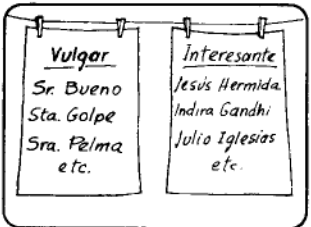 Vulgar
Sr. Bueno
Sta. Golpe
Sra. Pelma
etc.
Interesante
Jesús Hermida
Indira Gandhi
Julio Iglesias
etc.